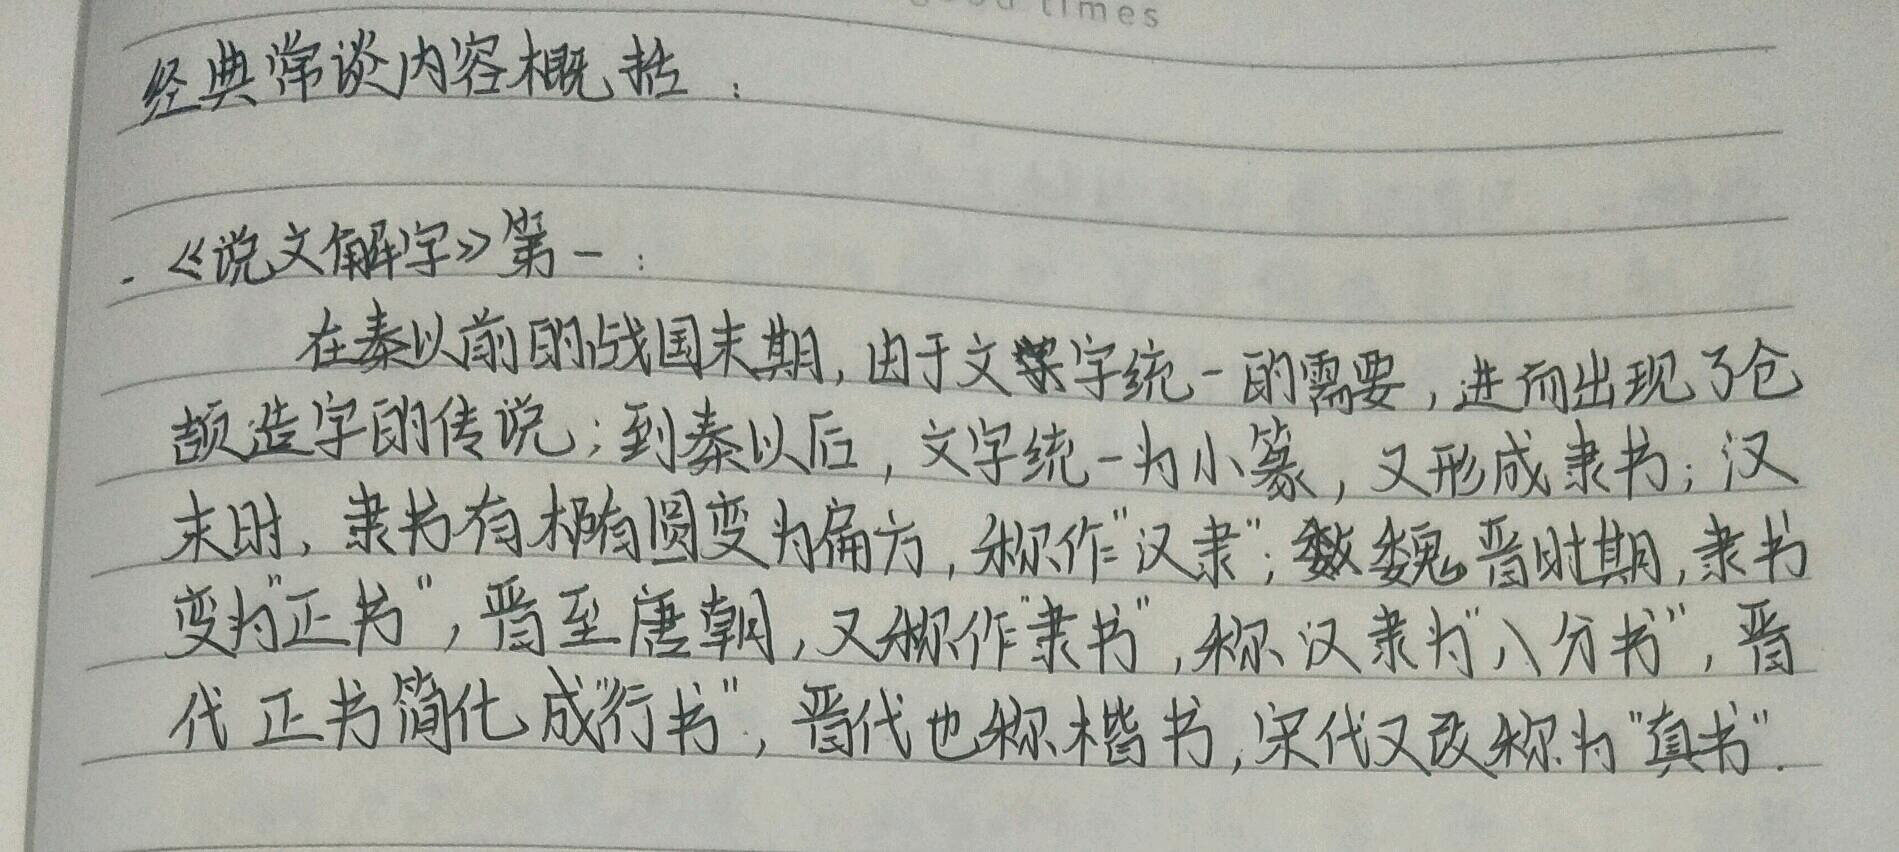 good times
经典常谈内容概括：
. 《说文解字》第一：
在秦以前的战国末期，由于文字统一的需要，进而出现了仓
颉造字的传说；到秦以后，文字统一为小篆，又形成隶书；汉
末时，隶书有椭圆变为扁方，称作“汉隶”；魏晋时期，隶书
变为“正书”，晋至唐朝，又称作“隶书”，称汉隶为“八分书”，晋
代正书简化成“行书”，晋代也称楷书，宋代又改称为“真书”.